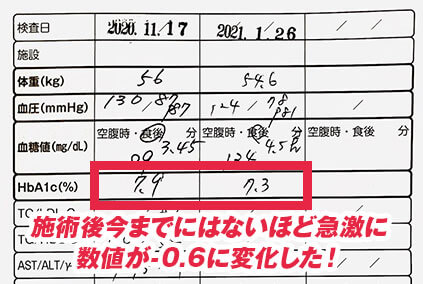 検査日 2020.11.17 2021.1.26 / /
施設
体重(kg) 56 54.6
血圧(mmHg) 130/87 P87 124/78 P81 /
血糖値(mg/dL) 空腹時・食後 分 空腹時・食後 分 空腹時・食後 分
3.45 4.5h
124
HbA1c(%) 7.9 7.3
施術後今までにはないほど急激に
数値が-0.6に変化した!
AST/ALT/γ